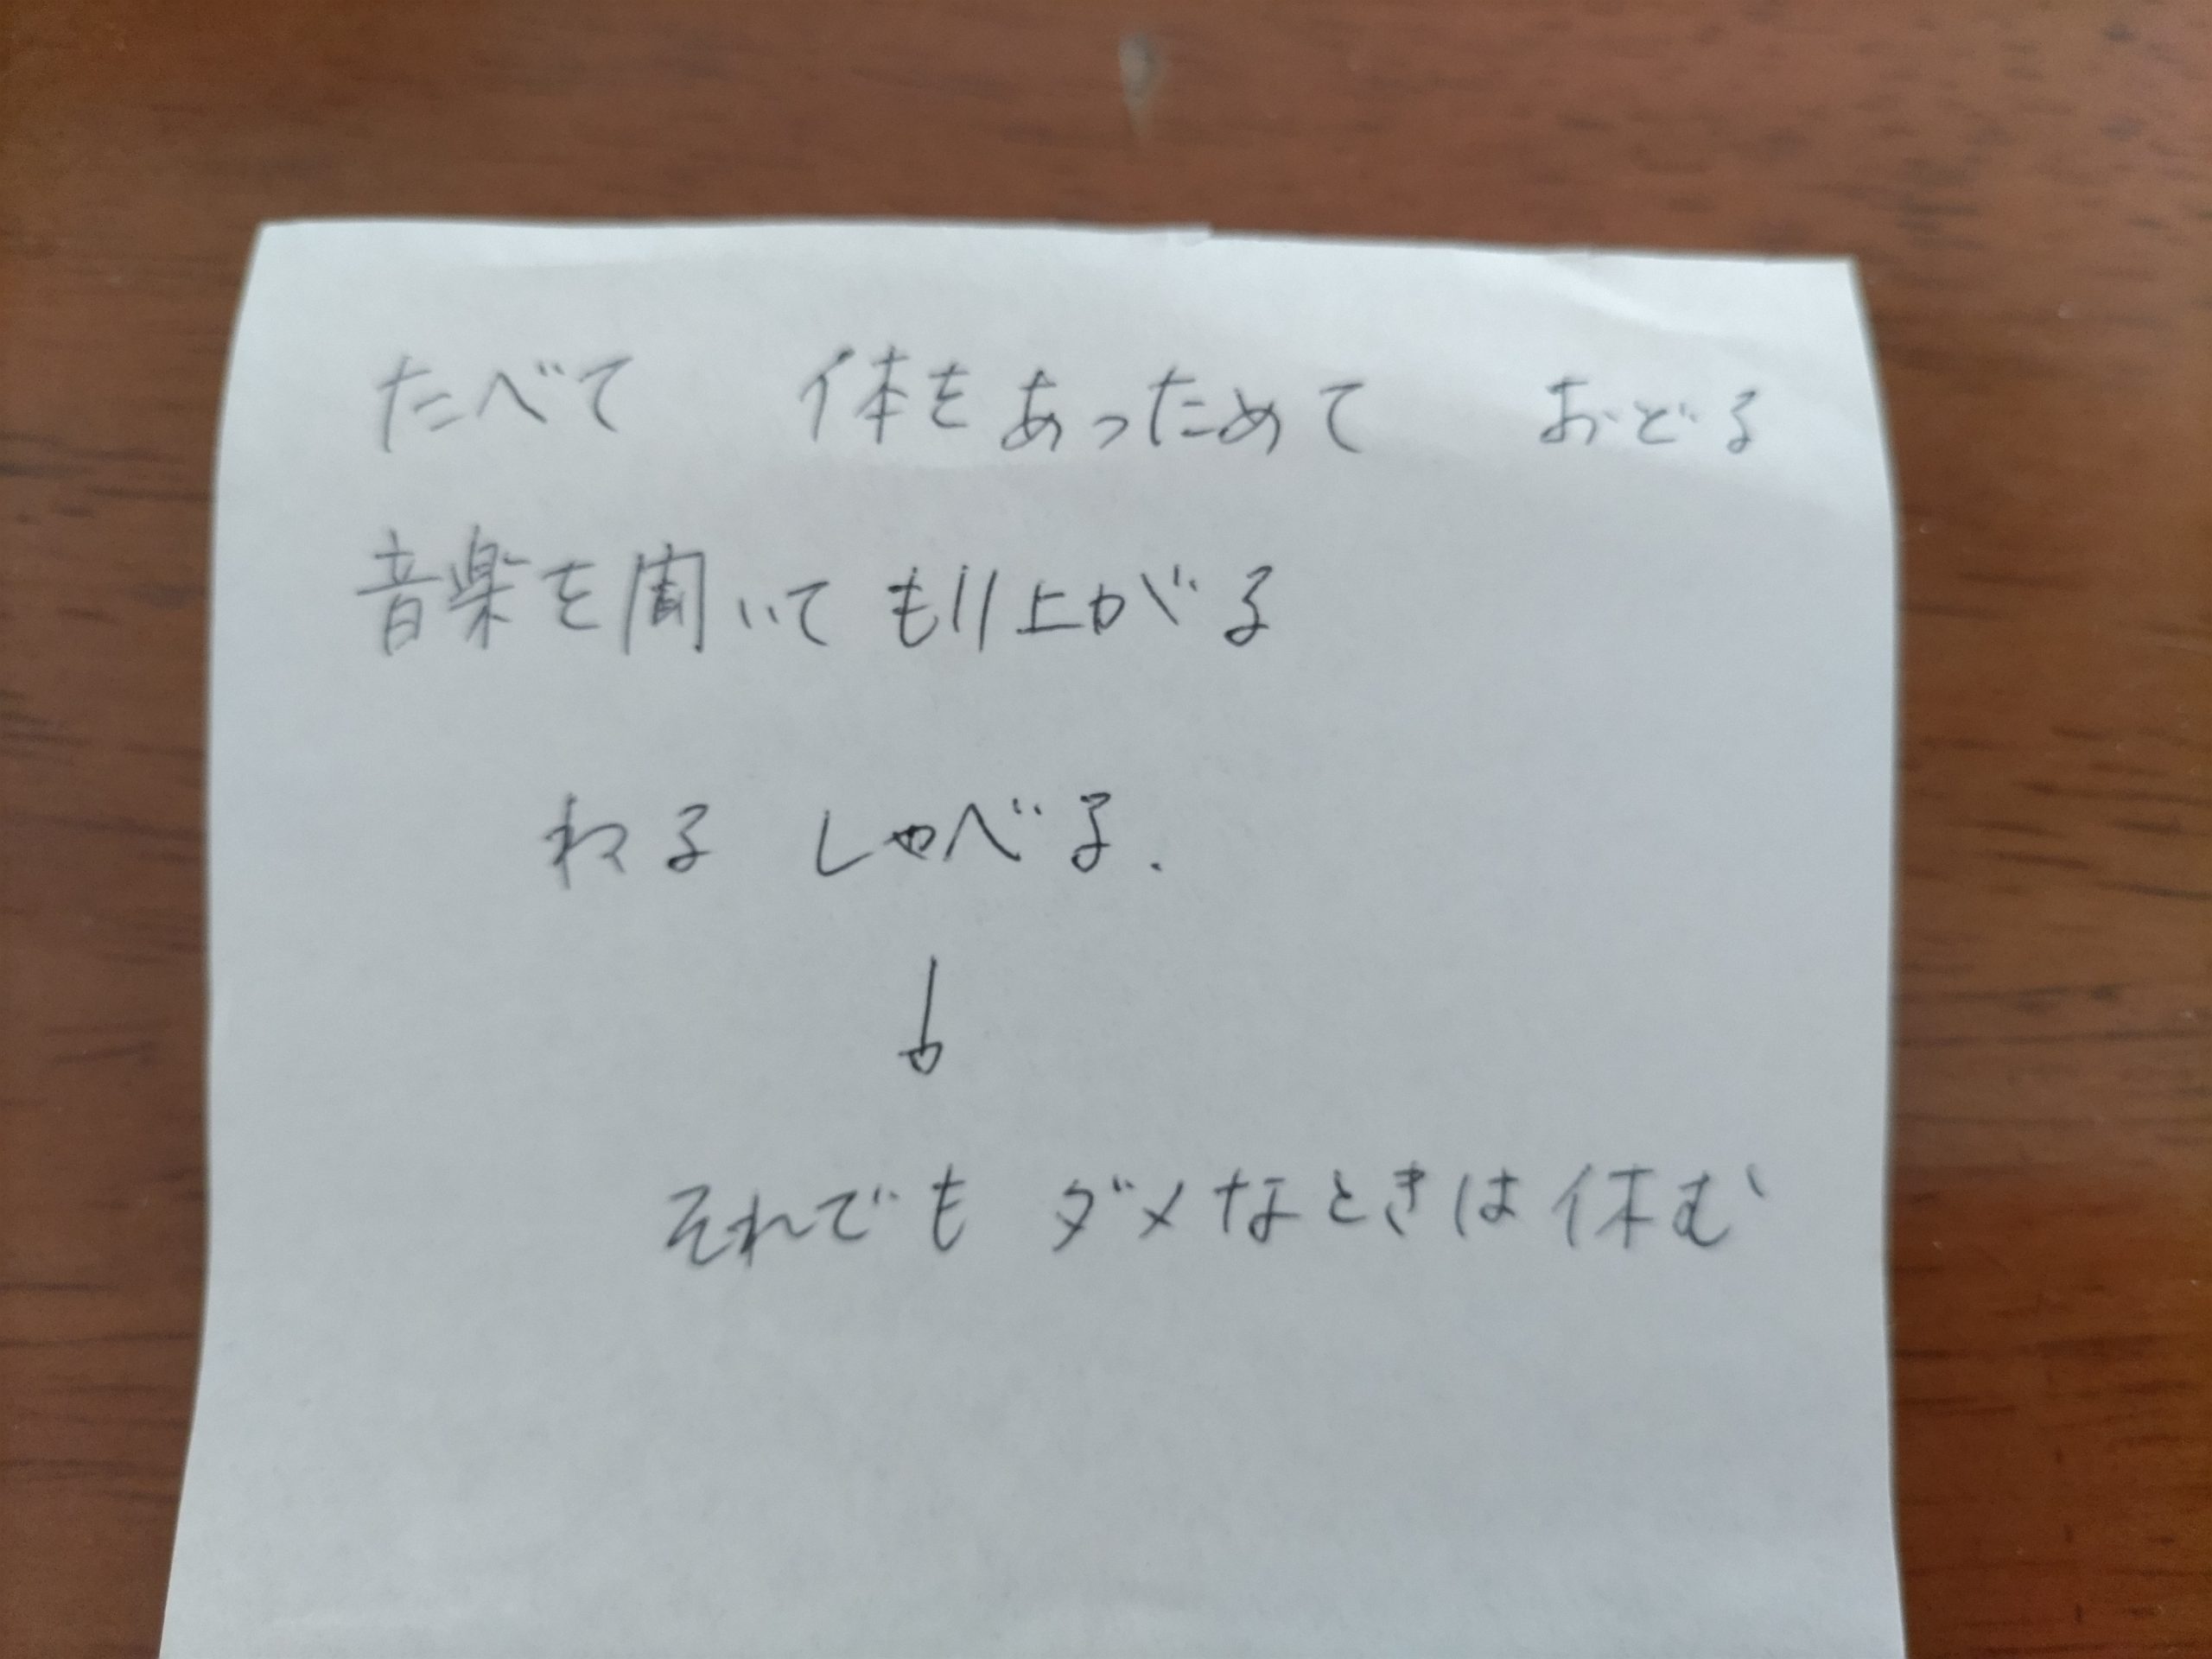 たべて 体をあっためて おどる
音楽を聞いてもり上がる
ねる しゃべる.
↓
それでも ダメなときは休む